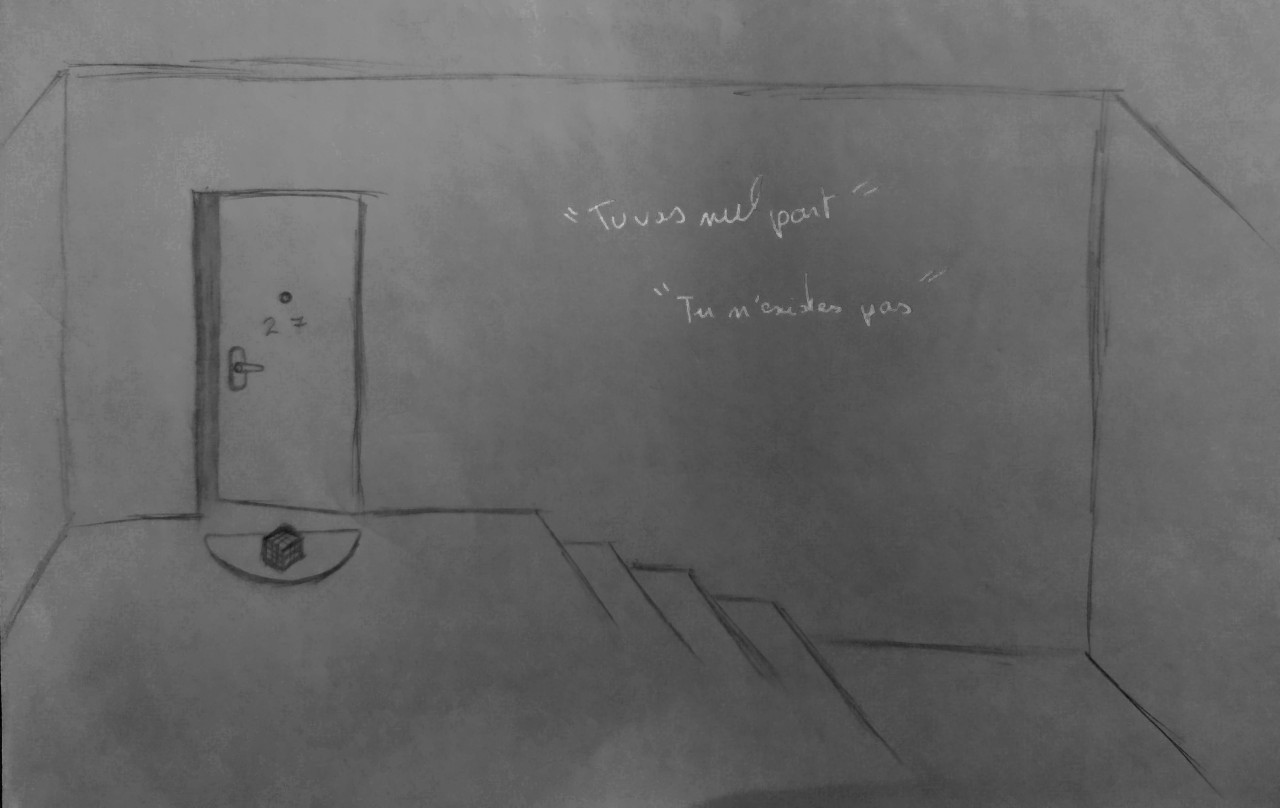 "Tu vas nul part"
"Tu n'existes pas"
27